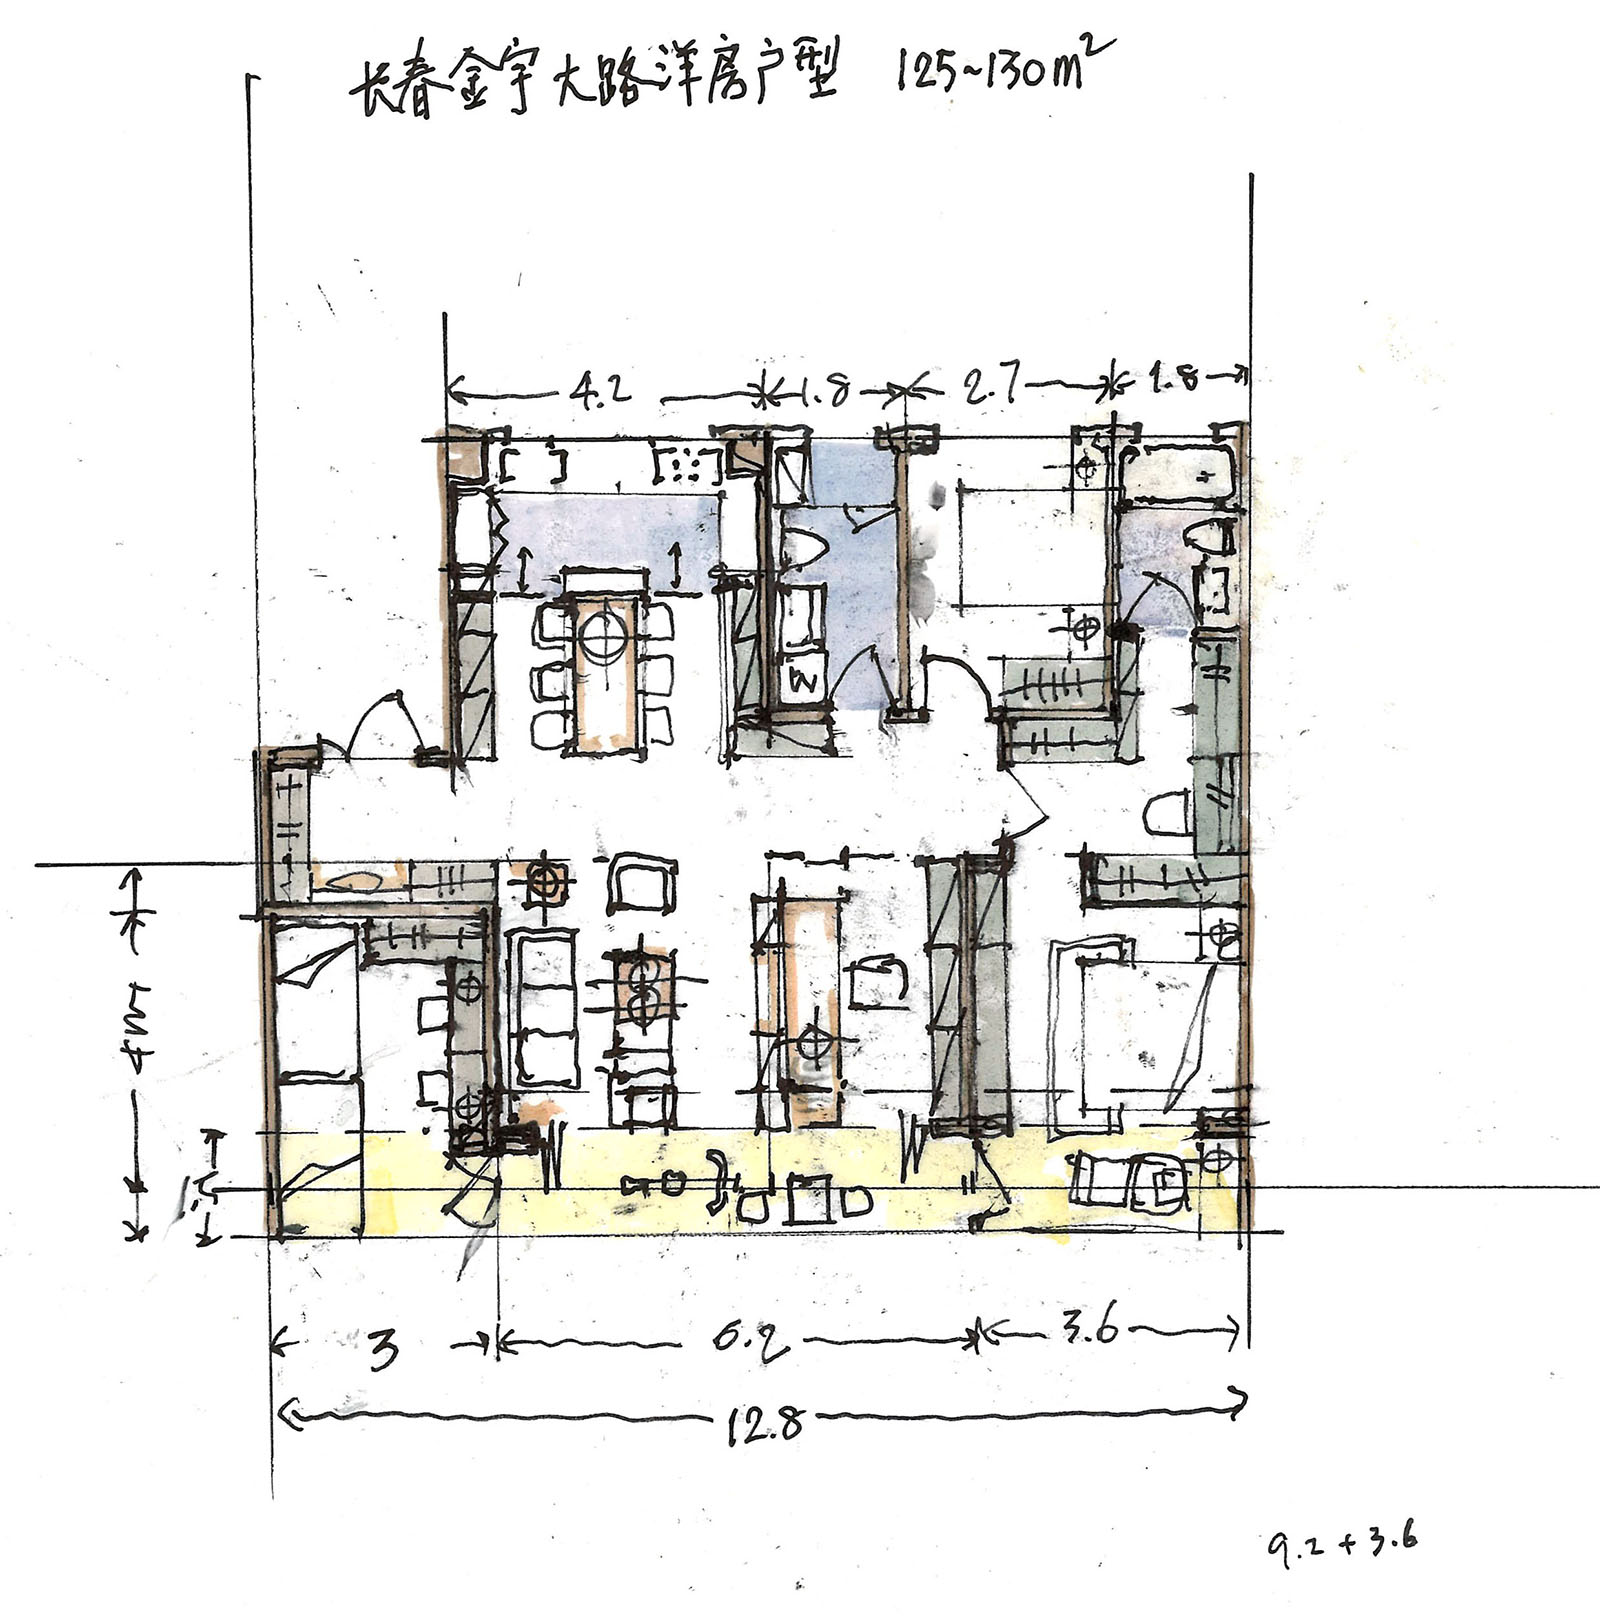 长春金宇大路洋房户型 125~130m²
4.2 1.8 2.7 1.8
W
4M
1.5
3 6.2 3.6
12.8
9.2+3.6